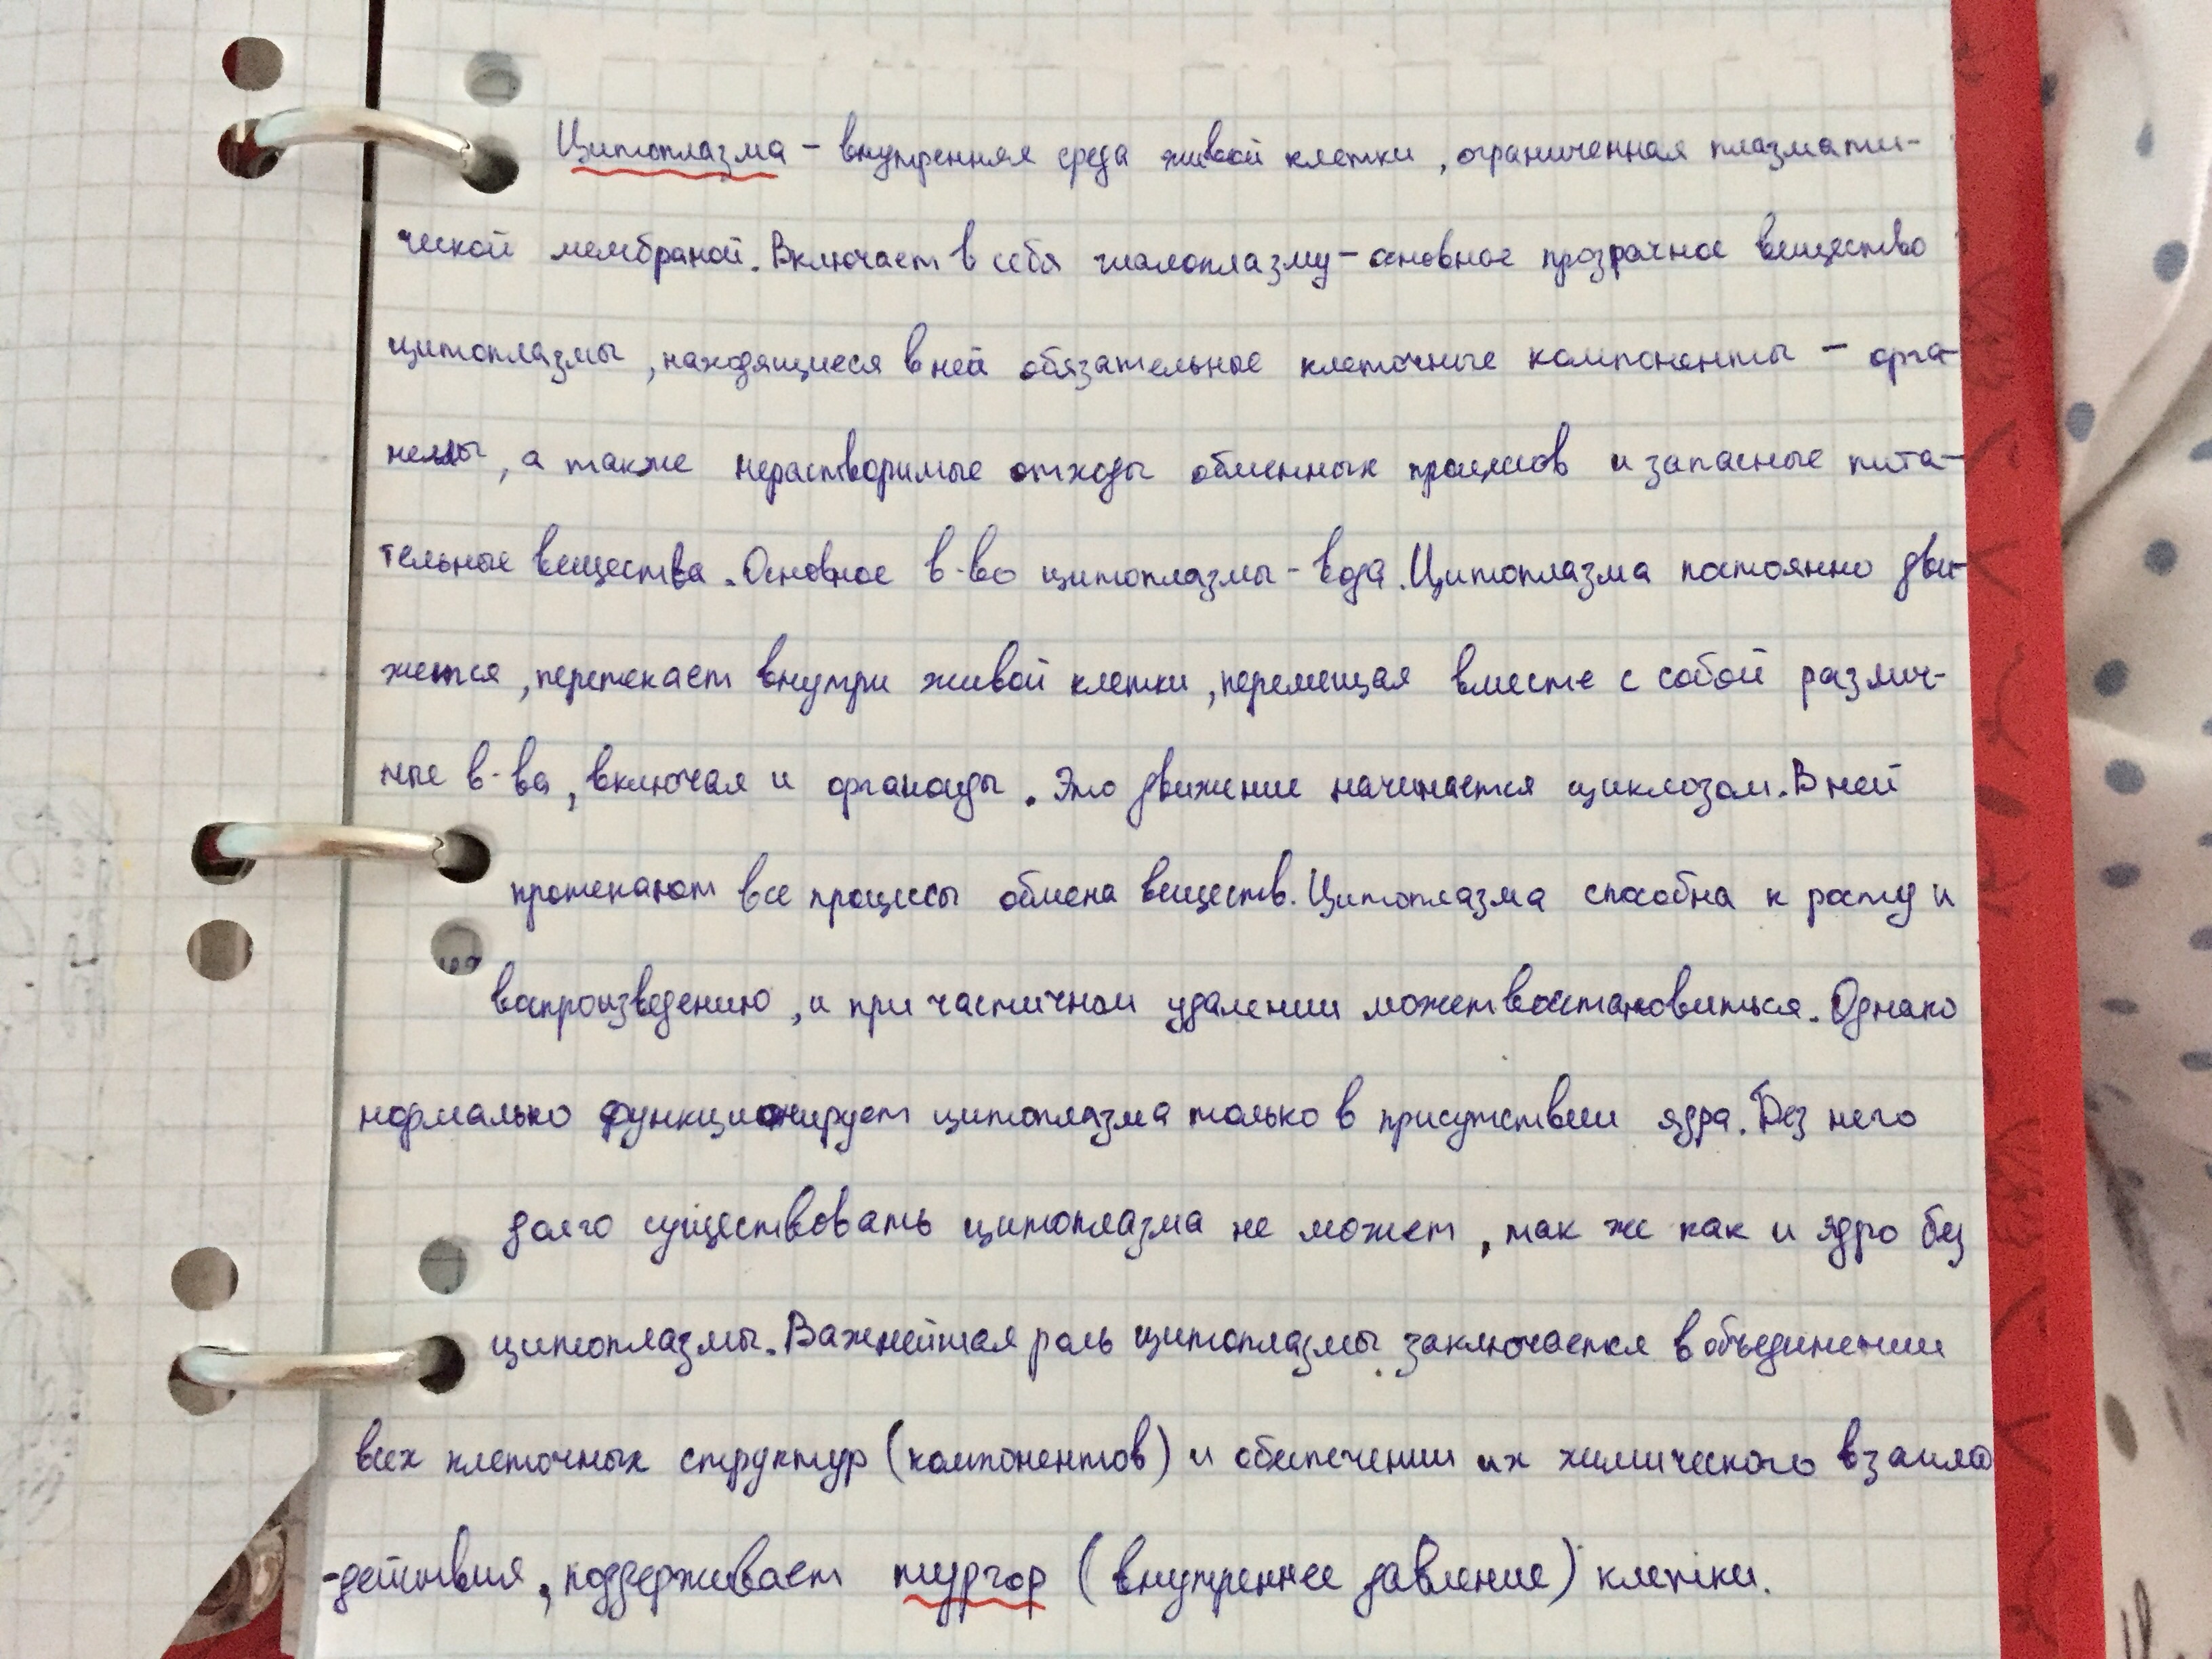 Цитоплазма – внутренняя среда живой клетки, ограниченная плазмати-
ческой мембраной. Включает в себя гиалоплазму – основное прозрачное вещество
цитоплазмы, находящиеся в ней обязательные клеточные компоненты – орга-
неллы, а также нерастворимые отходы обменных процессов и запасные пита-
тельные вещества. Основное в-во цитоплазмы - вода. Цитоплазма постоянно дви-
жется, перетекает внутри живой клетки, перемещая вместе с собой различ-
ные в-ва, включая и органоиды. Это движение начинается циклозом. В ней
протекают все процессы обмена веществ. Цитоплазма способна к росту и
воспроизведению, и при частичном удалении может восстановиться. Однако
нормально функционирует цитоплазма только в присутствии ядра. Без него
долго существовать цитоплазма не может, так же как и ядро без
цитоплазмы. Важнейшая роль цитоплазмы заключается в объединении
всех клеточных структур (компонентов) и обеспечении их химического взаимо
-действия, поддерживает тургор (внутреннее давление) клетки.